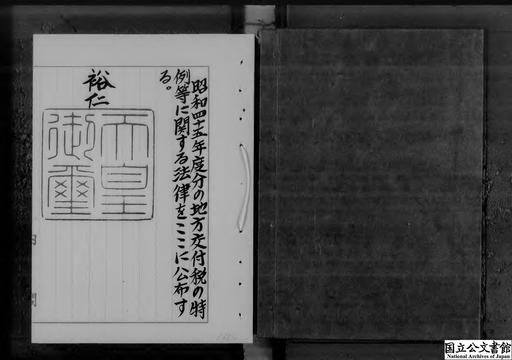 昭和四十五年度分の地方交付税の特
例等に関する法律をここに公布す
る。
裕仁
天皇
御璽
国立公文書館
National Archives of Japan